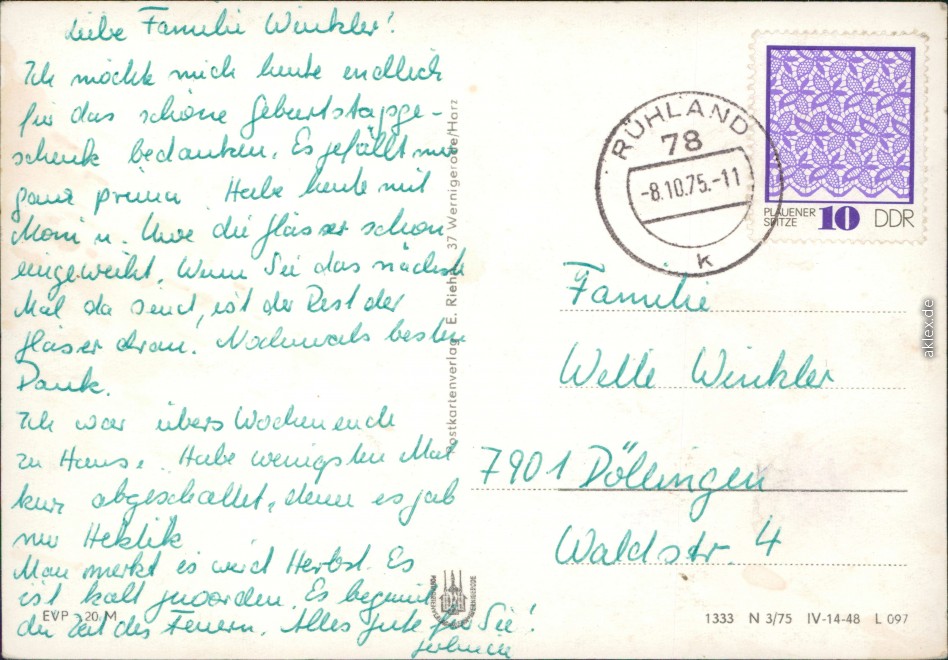 Liebe Familie Winkler!
Ich möchte mich heute endlich
für das schöne Geburtstagsge-
schenk bedanken. Es gefällt mir
ganz prima. Habe heute mit
Moni u. Uwe die Gläser schon
eingeweiht. Wenn Sie das nächste
Mal da sind, ist der Rest der
Gläser dran. Nochmals besten
Dank.
Ich war übers Wochenende
zu Hause. Habe wenigsten Mal
kurz abgeschaltet, denn es gab
nur Hektik
Man merkt es wird Herbst. Es
ist kalt geworden. Es beginnt
die Zeit des Feuern. Alles Gute für Sie!
EVP 20 M
Postkartenverlag E. Riehn 37 Wernigerode/Harz
RUHLAND
78
-8.10.75.-11
k
PLAUENER
SPITZE 10 DDR
Familie
Welle Winkler
7901 Döllingen
Waldstr. 4
1333 N 3/75 IV-14-48 L 097
aklex.de